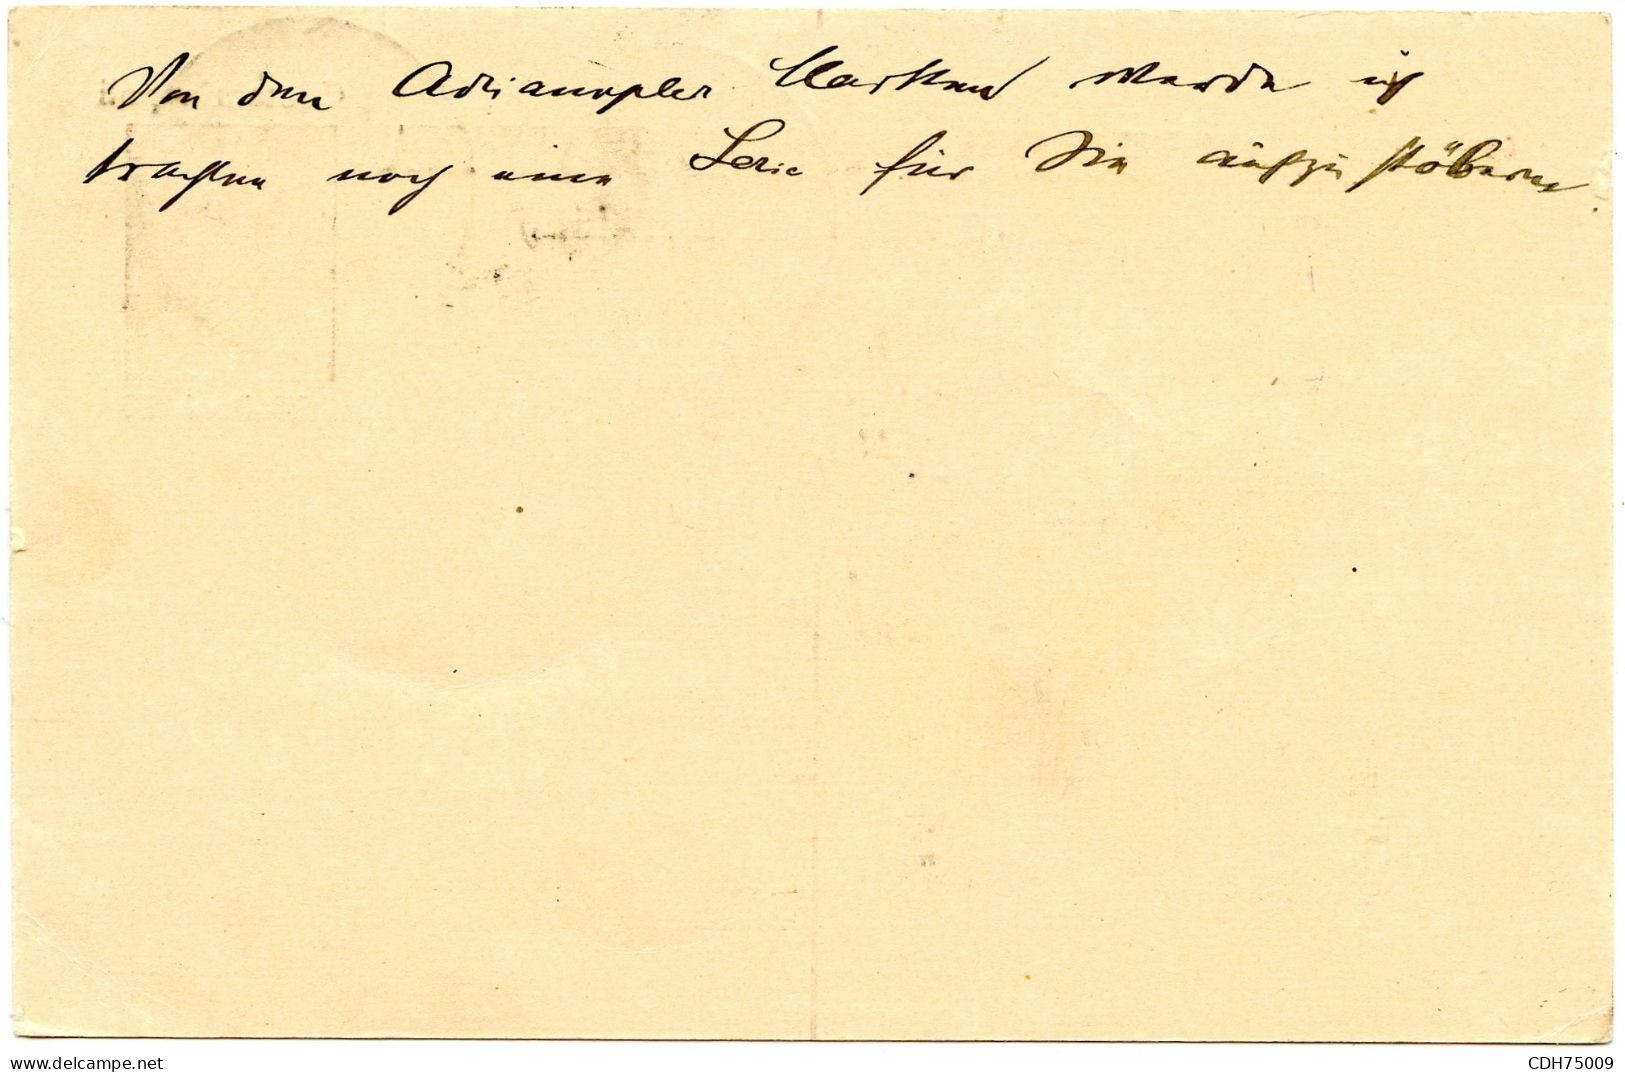 Von den Adrianopler Marken werde ich
trachten noch eine Serie für Sie aufzustöbern.
delcampe.net
CDH75009